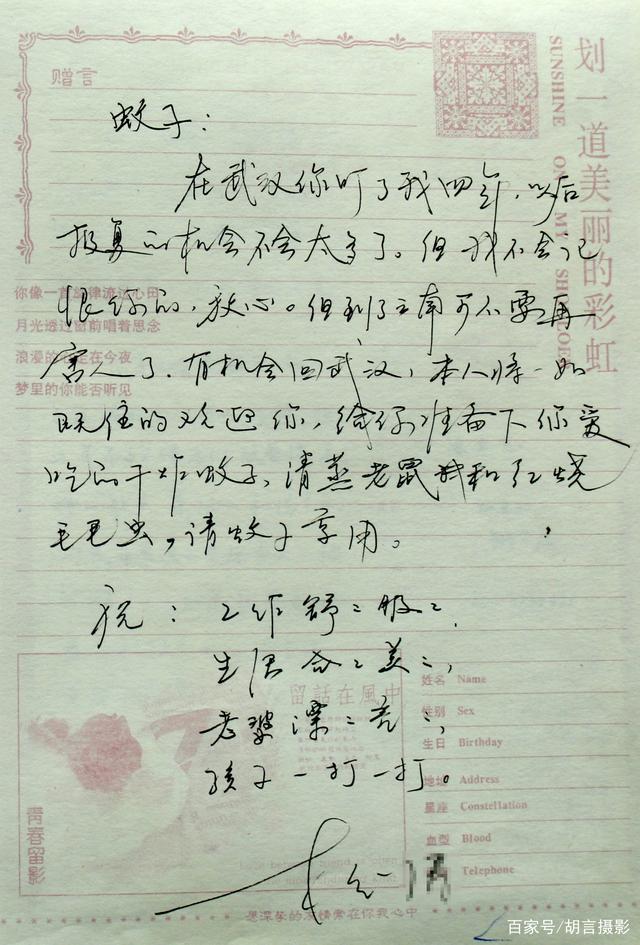 赠言
划一道美丽的彩虹
SUNSHINE ON MY SHOULDER
蚊子：
在武汉你叮了我四年，以后
报复的机会不会太多了。但我不会记
恨你的，放心。但到了云南可不要再
害人了，有机会回武汉，本人将一如
既往的欢迎你，给你准备下你爱
吃的干炸蚊子，清蒸老鼠 和红烧
毛毛虫，请蚊子享用。
你像一首旋律流过心田
月光透过窗前唱着思念
浪漫的 在今夜
梦里的你能否听见
祝：工作舒：服：，
生活合：美：，
老婆漂：亮：，
孩子一打一打。
留話在風中
青春留影
姓名 Name
性别 Sex
生日 Birthday
地址 Address
星座 Constellation
血型 Blood
Telephone
思深挚的友情常在你我心中
百家号/胡言摄影